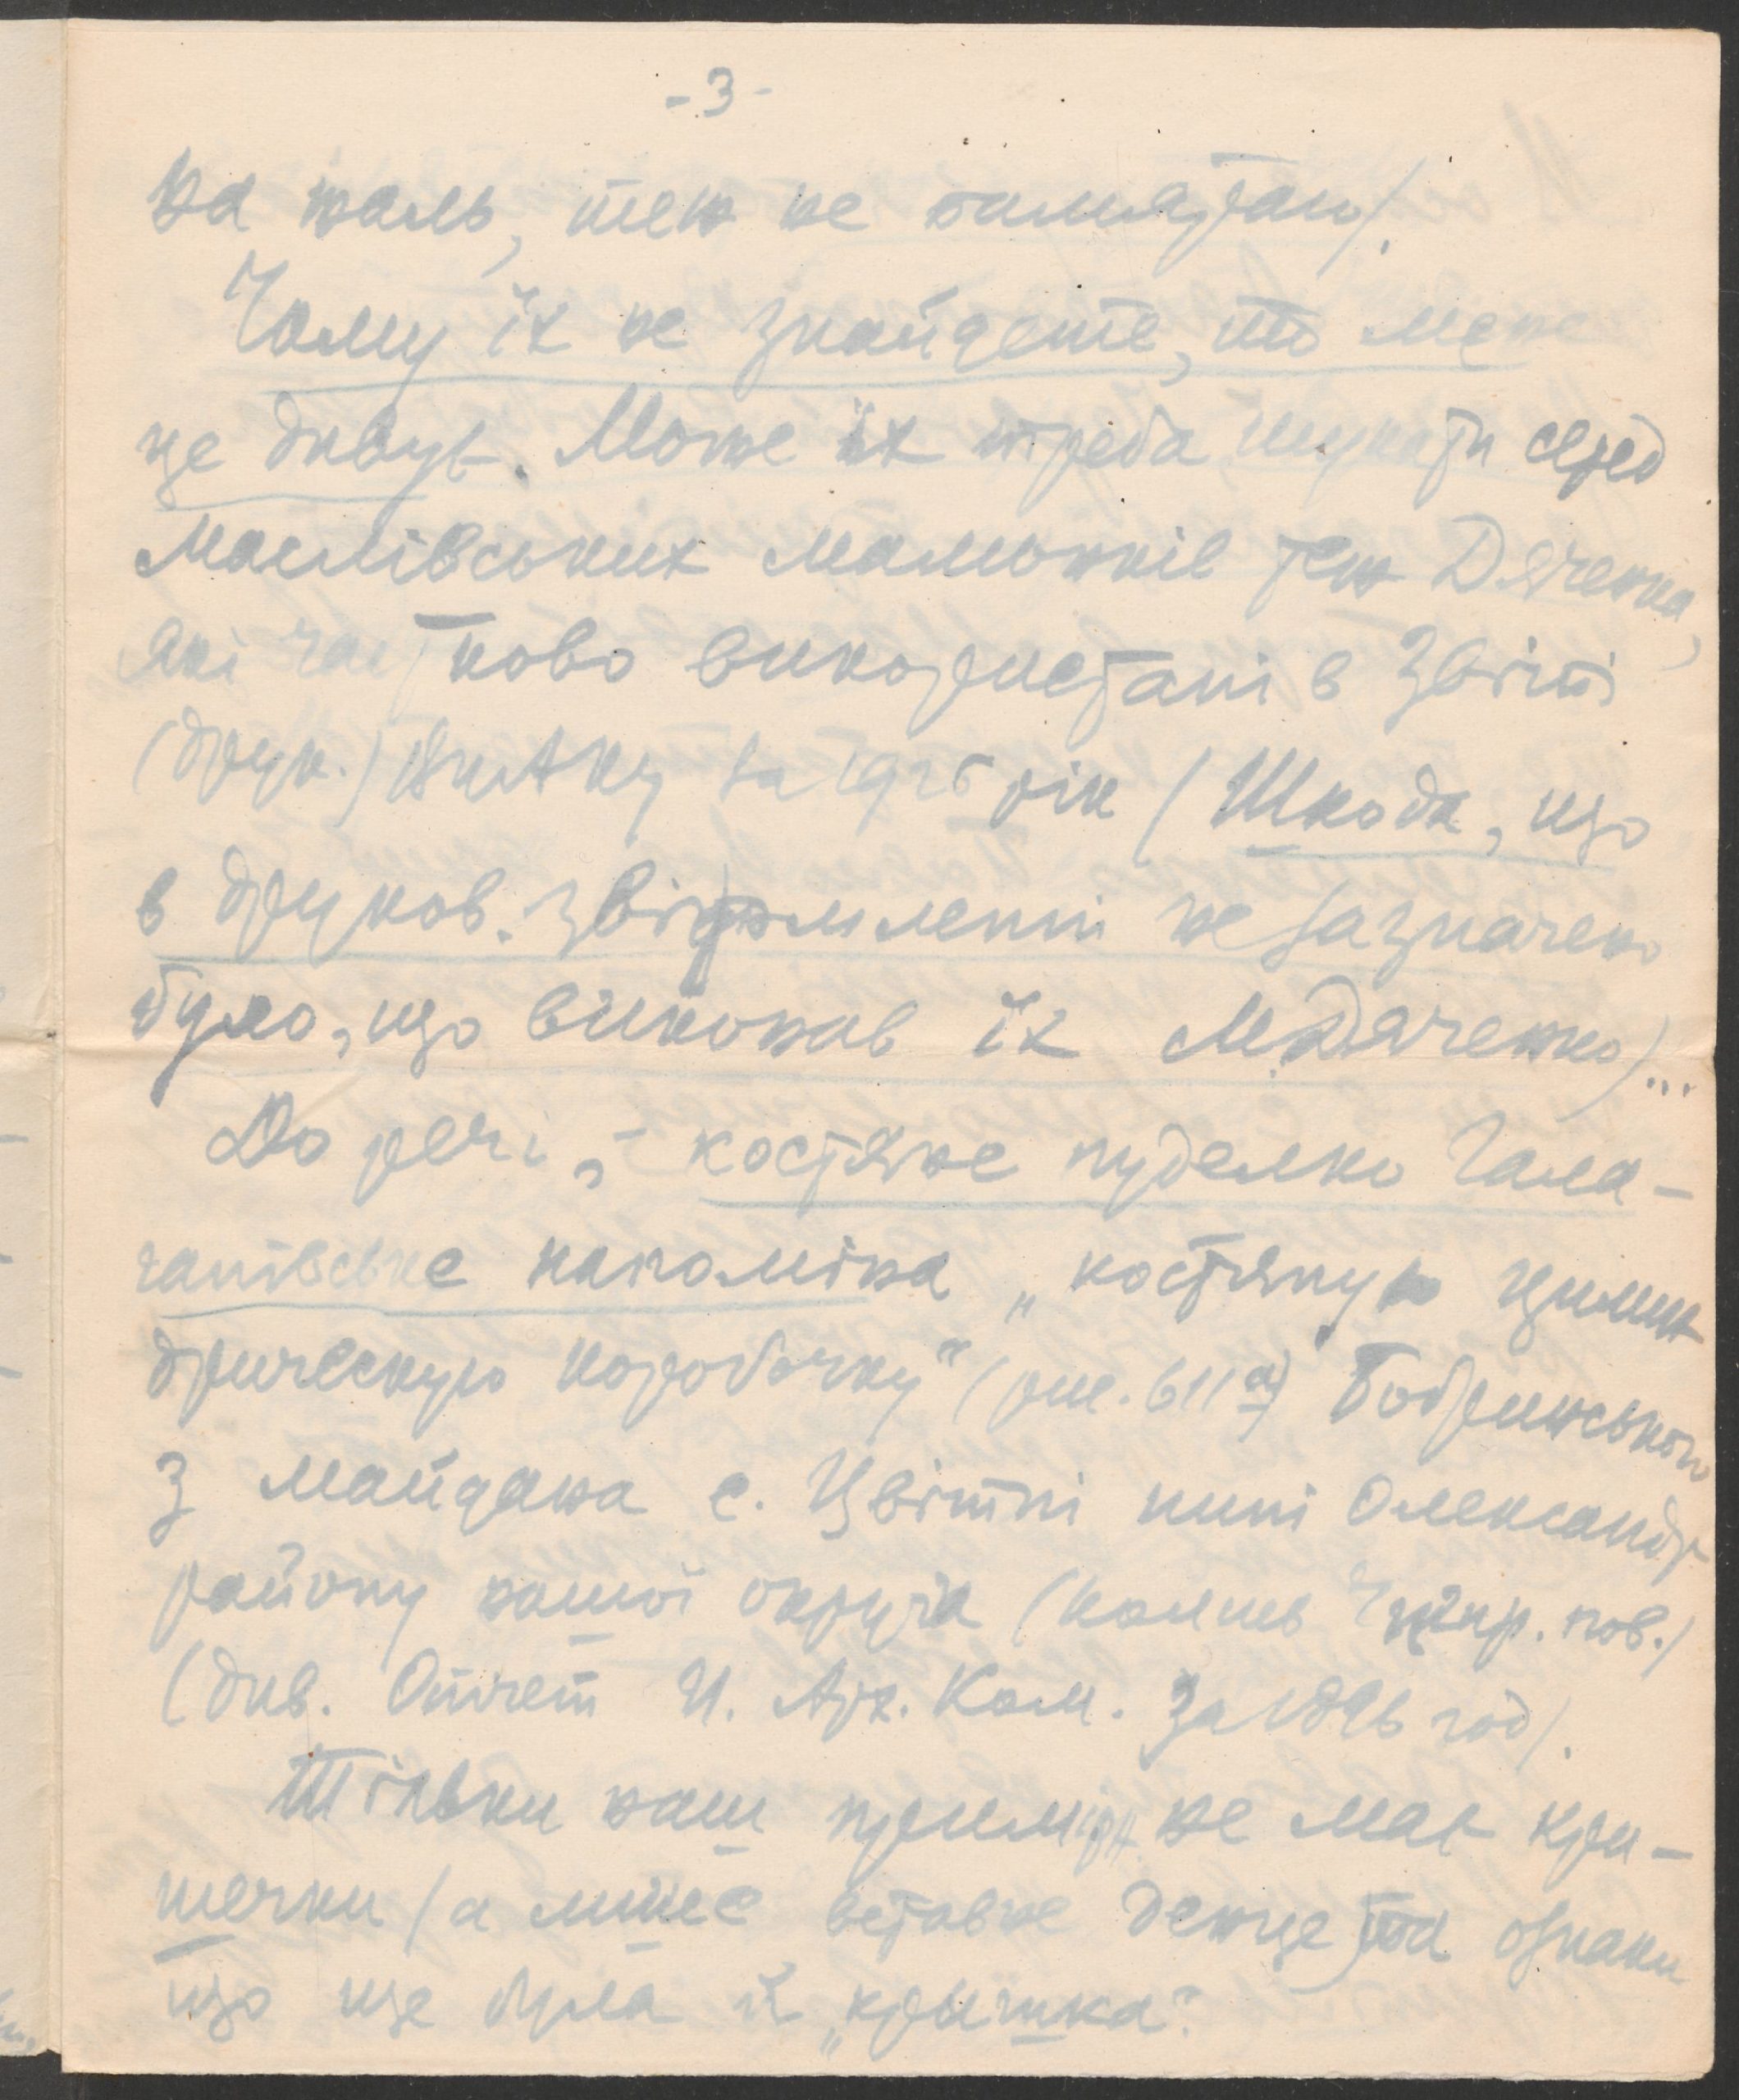 -3-
на жаль, теж не памятаю/.
Чому їх не знайдете, то мене
це дивує. Може їх треба шукати серед
маслівських малюнків теж Дяченка,
які частково використані в Звіті
(друк.) ВУАКу за 1926 рік (Шкода, що
в друков. звідомленні не зазначено
було, що виконав їх М. Дяченко)...
До речі, - костяне пуделко Гала-
ганівське нагоміна „костяную цилин
дрическую коробочку" (рис. 611а) Бобринського
з майдана с. Цвітні нині Олександр
району нашої округи (колись Чигир. пов.)
(див. Отчет И. Арх. Ком. за 1896 год).
Тільки наш примірн. не має кри-
шечки (а лише вставне денце) та ознаки
що ще була й „крышка".